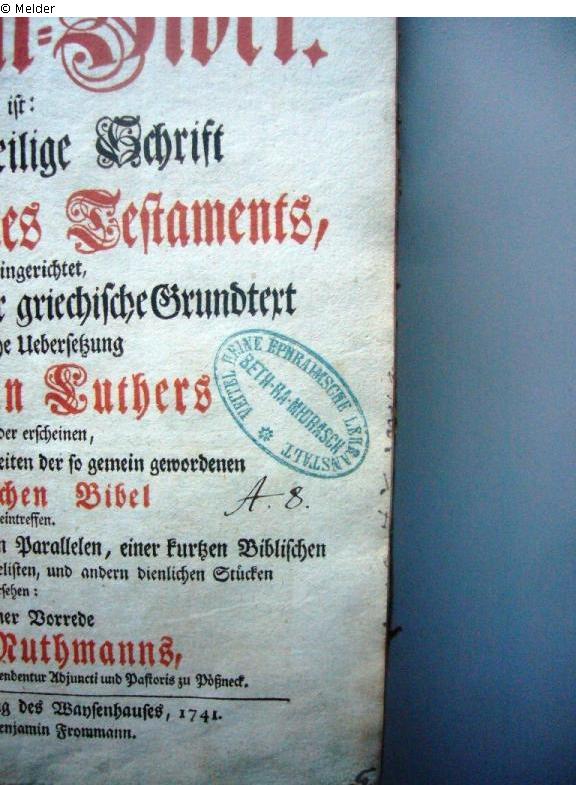 © Melder
-Bibel.
ist:
eilige Schrift
es Testaments,
ingerichtet,
r griechische Grundtext
he Uebersetzung
n Luthers
der erscheinen,
eiten der so gemein gewordenen
chen Bibel
eintreffen.
n Parallelen, einer kurtzen Biblischen
elisten, und andern dienlichen Stücken
ersehen:
ner Vorrede
Ruthmanns,
endentur Adjuncti und Pastoris zu Pößneck.
g des Waysenhauses, 1741.
enjamin Frommann.
VEITEL HEINE EPHRAIMSCHE LEHRANSTALT
BETH-HA-MIDRASCH
A. 8.